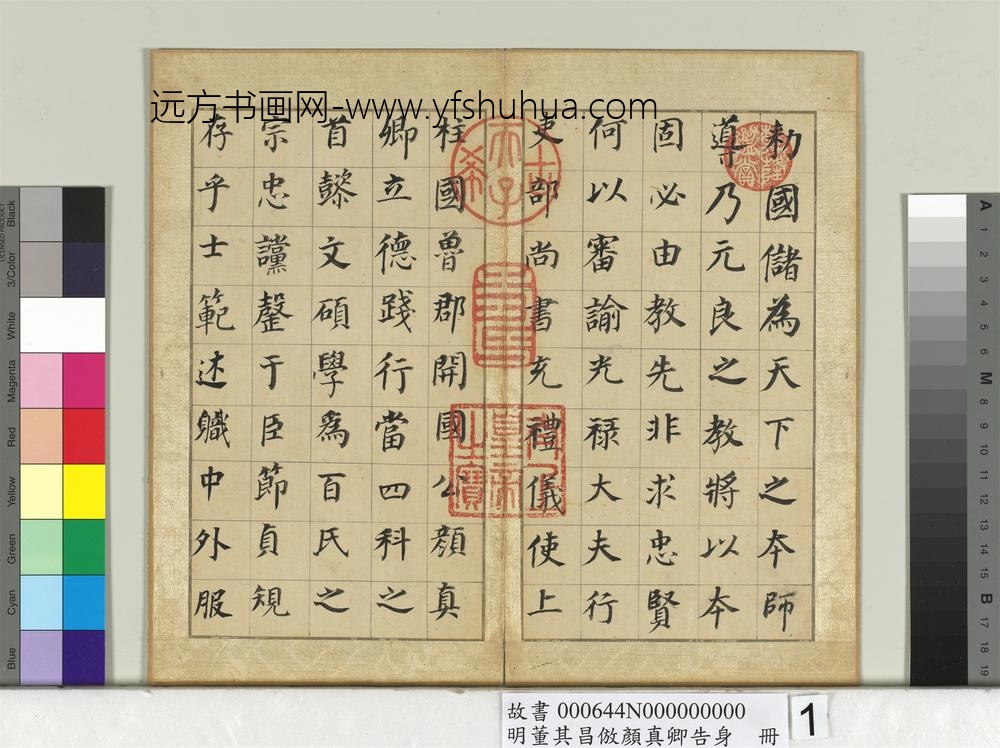 远方书画网-www.yfshuhua.com
勑國儲為天下之本師
導乃元良之教將以本
固必由教先非求忠賢
何以審諭光禄大夫行
吏部尚書充禮儀使上
柱國魯郡開國公顔真
卿立德踐行當四科之
首懿文碩學爲百氏之
宗忠讜罄于臣節貞規
存乎士範述職中外服
LICENSED PRODUCT
Black
3/Color
White
Magenta
Red
Yellow
Green
Cyan
Blue
A
1
2
3
4
5
6
M
8
9
10
11
12
13
14
15
B
17
18
19
故書 000644N000000000
明董其昌倣顏真卿告身 冊
1